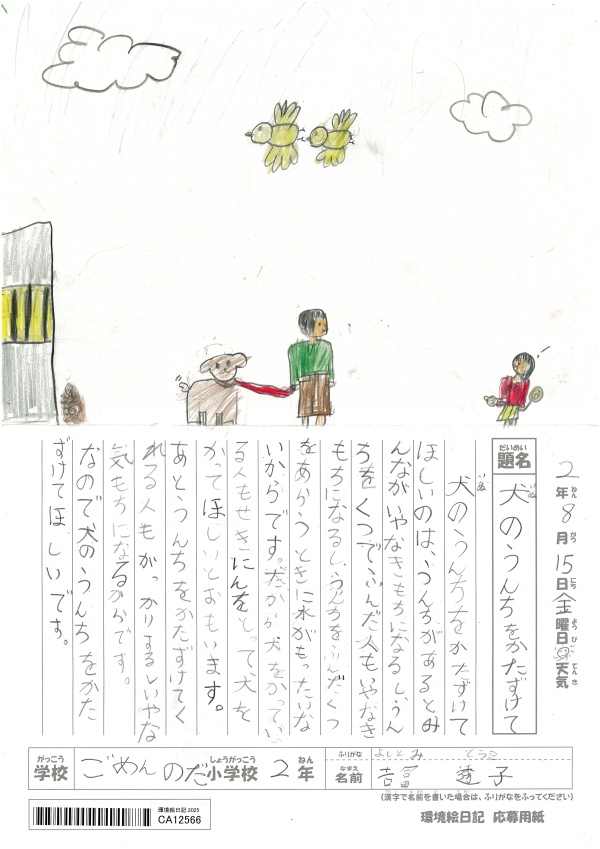 2年8月15日金曜日 天気
ねん がつ にち ようび てんき
だいめい
題名
いぬ
犬のうんちをかたずけて
いぬ
犬のうんちをかたずけて
ほしいのは、うんちがあるとみ
んながいやなきもちになるし、うん
ちをくつでふんだ人もいやなき
もちになるし、うんちをふんだくつ
をあらうときに水がもったいな
いからです。だから犬をかってい
る人もせきにんをとって犬を
かってほしいとおもいます。
あとうんちをかたずけてく
れる人もがっかりするしいやな
気もちになるからです。
なので犬のうんちをかた
ずけてほしいです。
がっこう しょうがっこう ねん
学校 ごめんのだ小学校 2年
ふりがな よしとみ
なまえ
名前 吉冨 透子
(漢字で名前を書いた場合は、ふりがなをふってください)
環境絵日記 2025
CA12566
環境絵日記 応募用紙